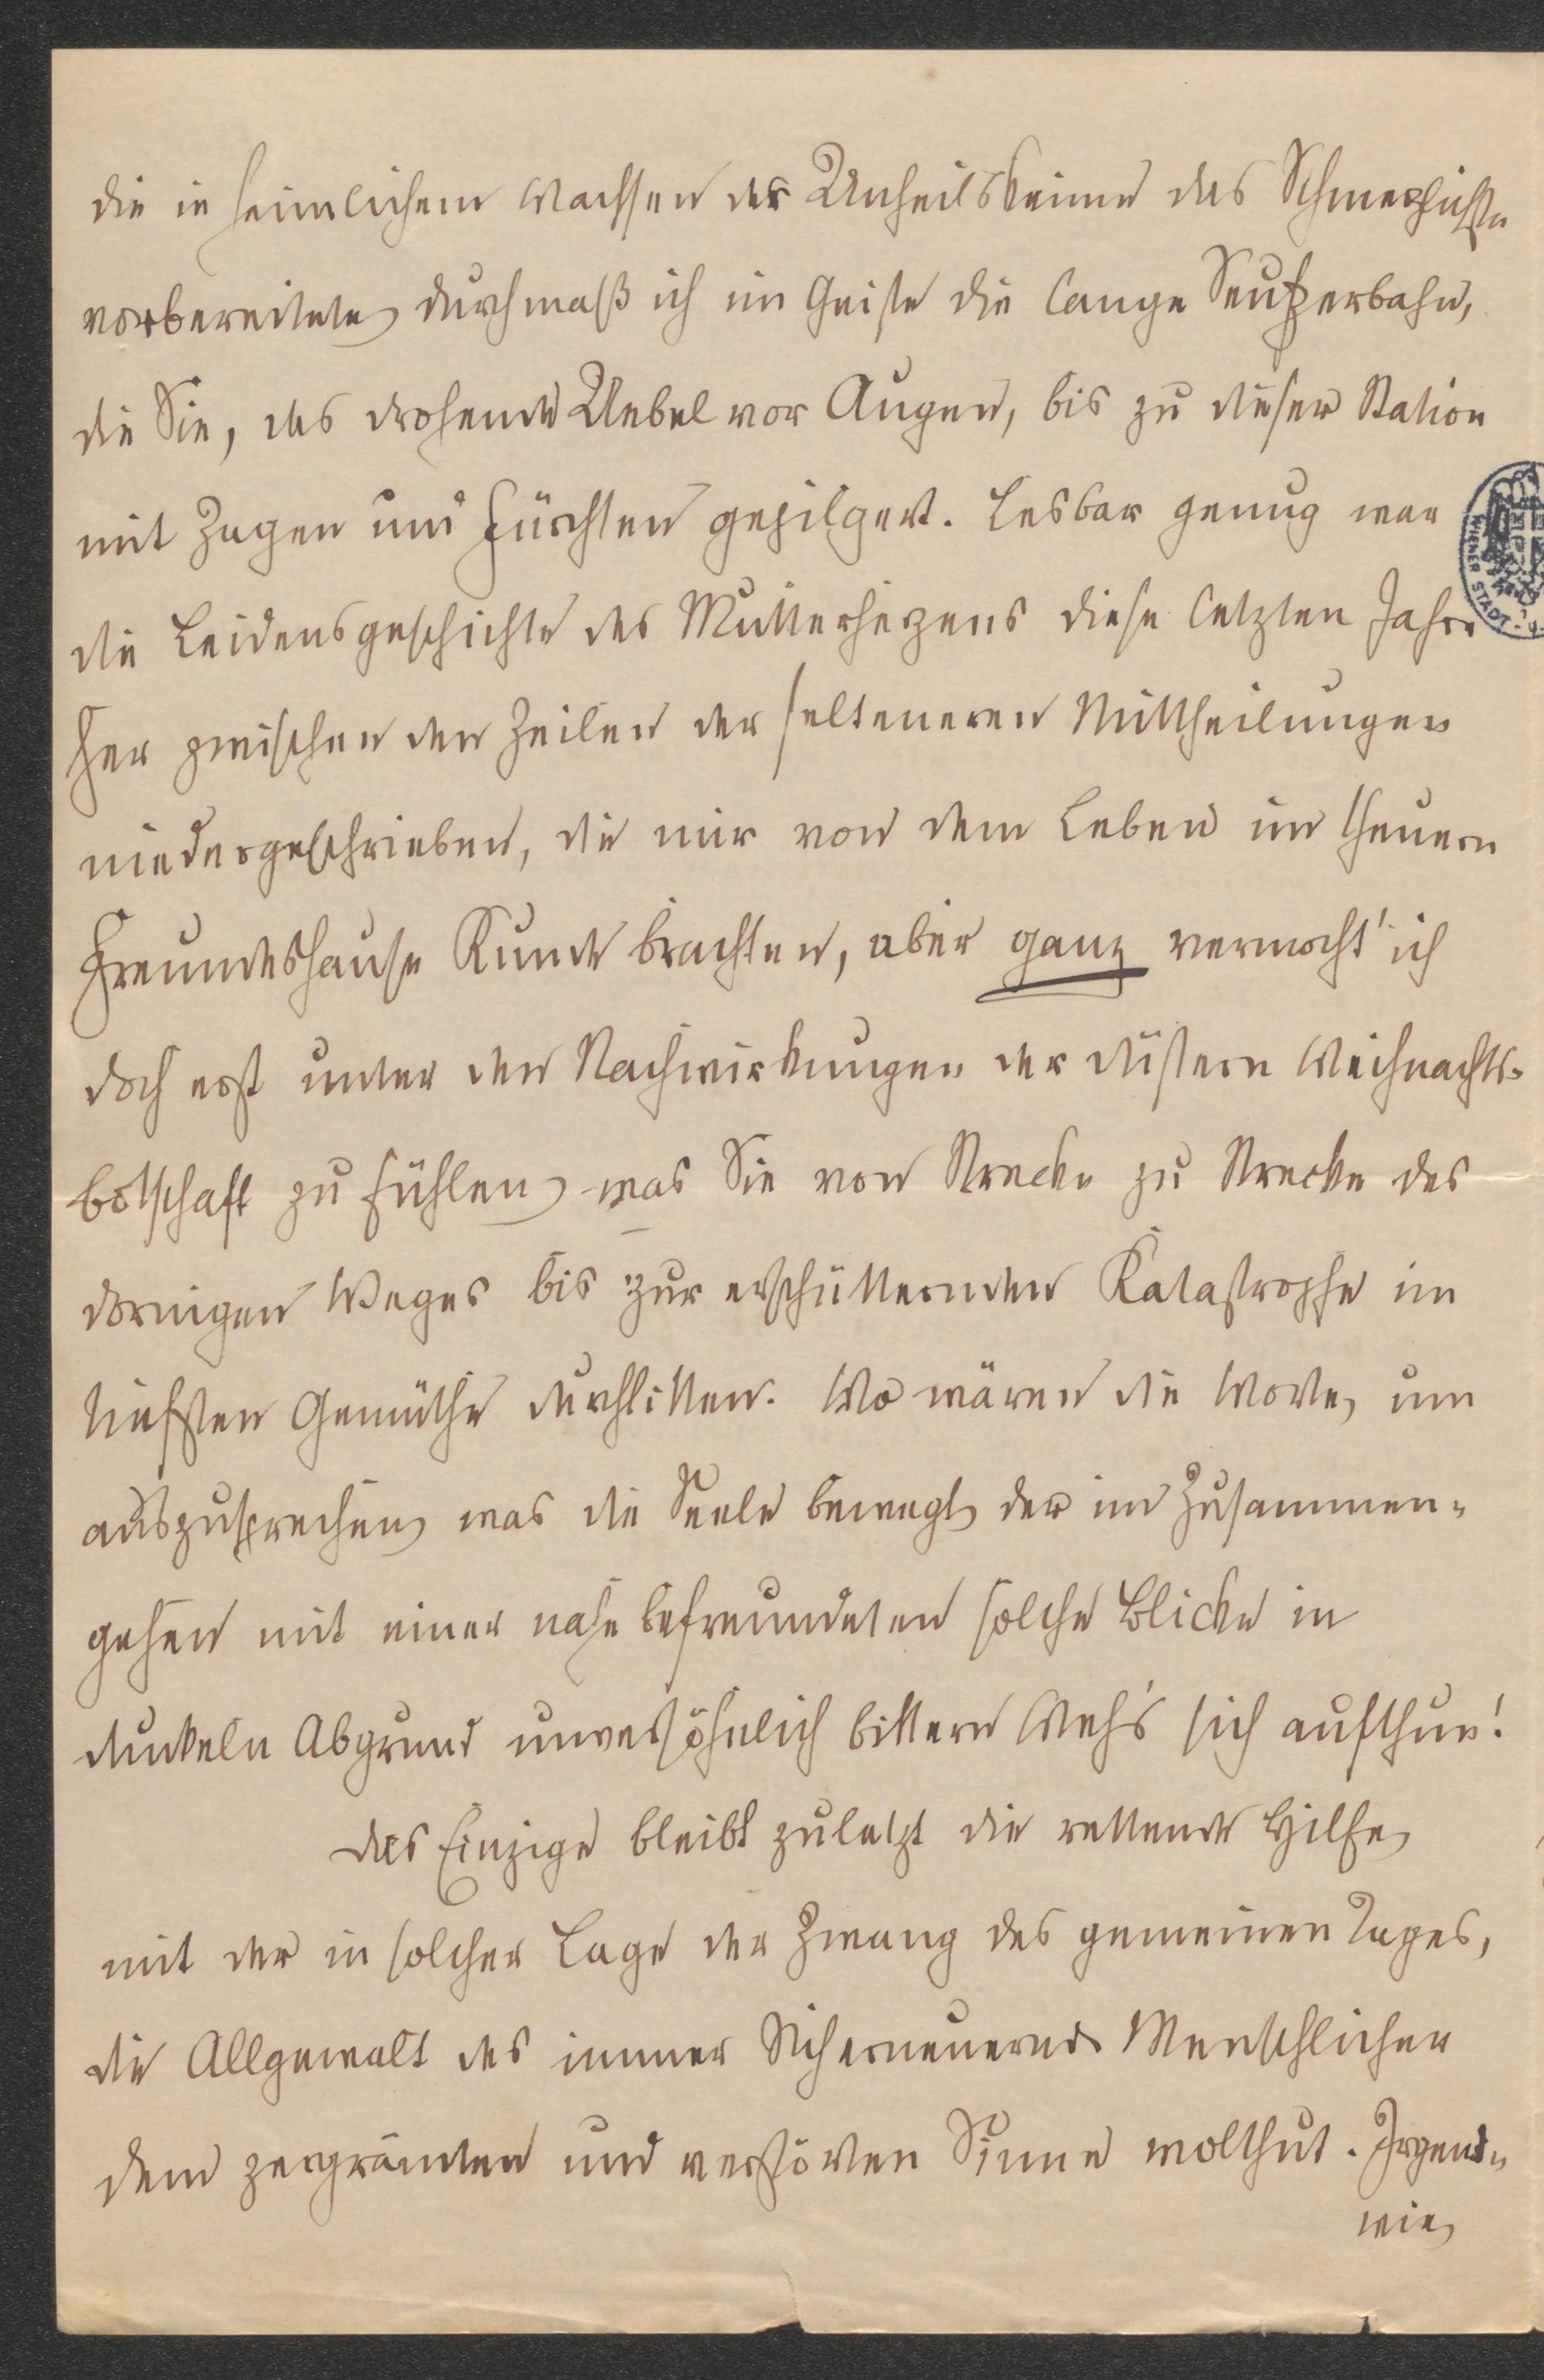 die in heimlichem Wachsen der Unheilskeime das Schmerzlichste
vorbereitete, durchmaß ich im Geiste die lange Seufzerbahn,
die Sie, das drohende Uebel vor Augen, bis zu dieser Station
mit Zagen und Fürchten gepilgert. Lesbar genug war
die Leidensgeschichte des Mutterherzens diese letzten Jahre
her zwischen den Zeilen der selteneren Mittheilungen
niedergeschrieben, die mir von dem Leben im theuern
Freundeshause Kunde brachten, aber ganz vermocht' ich
doch erst unter den Nachwirkungen der düstern Weihnachts-
botschaft zu fühlen, was Sie von Strecke zu Strecke des
dornigen Weges bis zur erschütternden Katastrophe im
tiefsten Gemüthe durchlitten. Wo wären die Worte, um
auszusprechen, was die Seele bewegt, der im Zusammen-
gehen mit einer nahe befreundeten solche Blicke in
dunkeln Abgrund unversöhnlich bittern Weh's sich aufthun!
Das Einzige bleibt zuletzt die rettende Hilfe,
mit der in solcher Lage der Zwang des gemeinen Tages,
die Allgewalt des immer Sicherneuernds Menschlichen
dem zergrämten und verstörten Sinne wolthut. Irgend-
wie,
WIENER STADT-